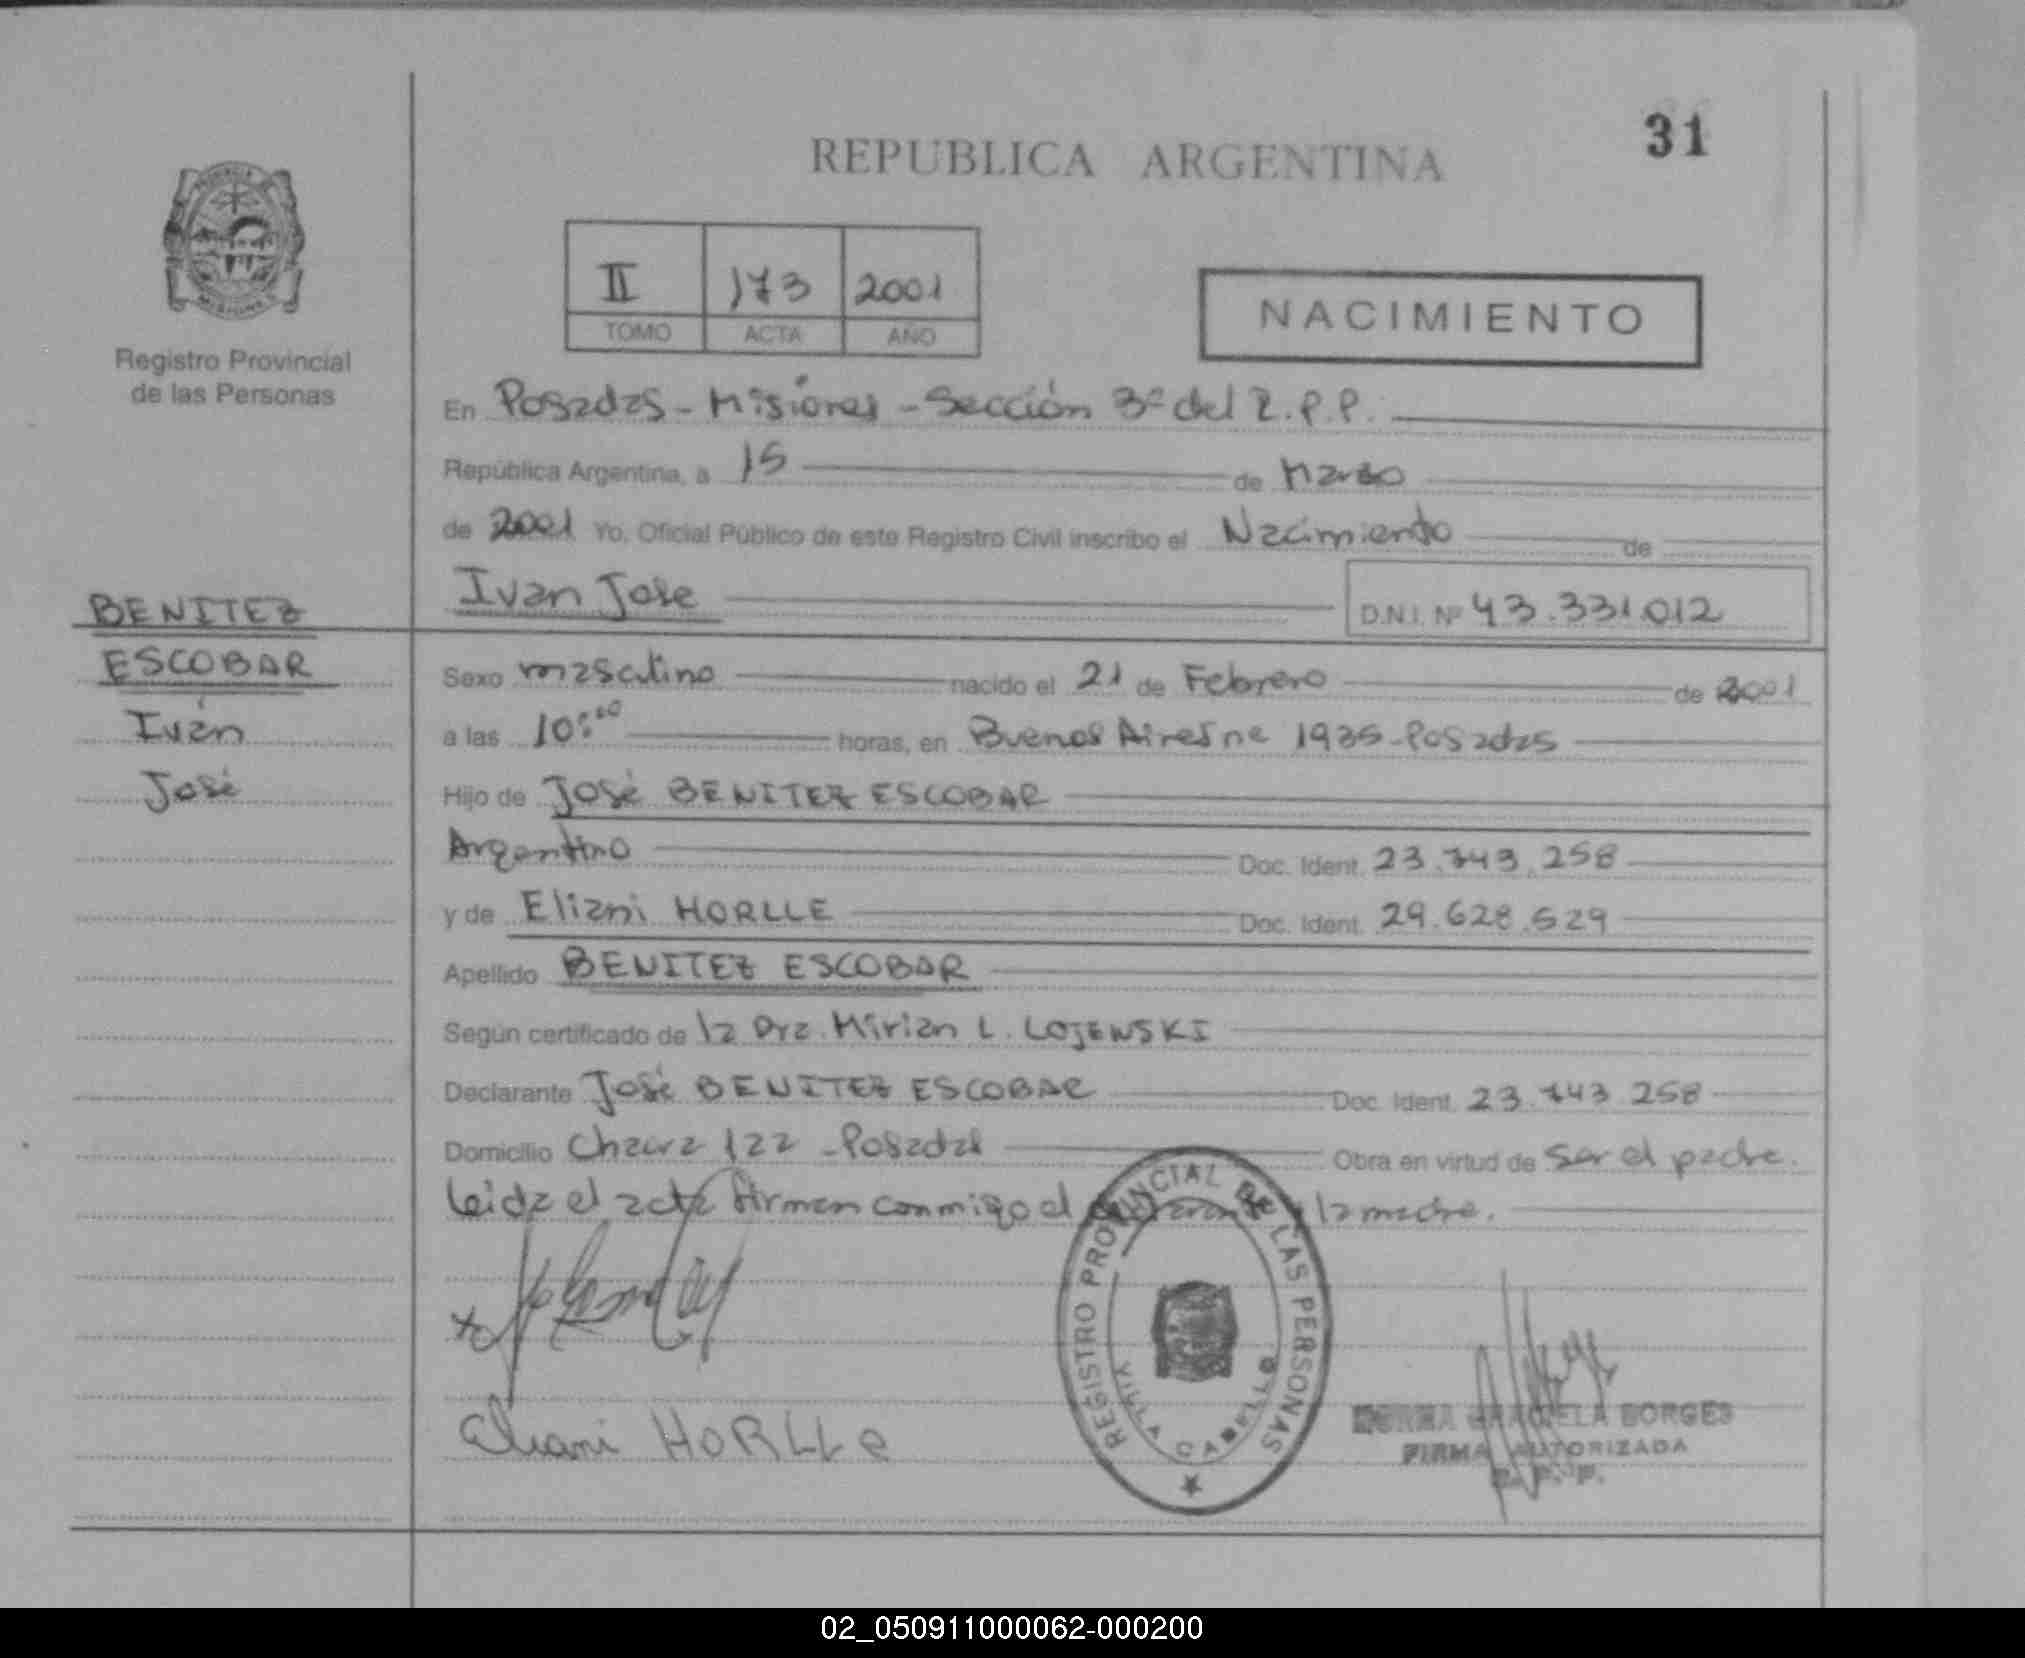 31
REPUBLICA ARGENTINA
II 173 2001
TOMO ACTA AÑO
NACIMIENTO
Registro Provincial
de las Personas
En Posadas - Misiones - Sección 3º del R.P.P.
República Argentina, a 15 de Marzo
de 2001 Yo, Oficial Público de este Registro Civil inscribo el Nacimiento de
Ivan Jose D.N.I. Nº 43.331.012
BENITEZ
ESCOBAR
Iván
José
Sexo masculino nacido el 21 de Febrero de 2001
a las 10:00 horas, en Buenos Aires ne 1935 - Posadas
Hijo de José BENITEZ ESCOBAR
Argentino Doc. Ident. 23.743.258
y de Eliani HORLLE Doc. Ident. 29.628.529
Apellido BENITEZ ESCOBAR
Según certificado de la Dra. Mirian L. LOJEWSKI
Declarante José BENITEZ ESCOBAR Doc. Ident. 23.743.258
Domicilio Chacra 122 - Posadas Obra en virtud de ser el padre.
Leida el acta firman conmigo el declarante y la madre.
Eliani HORLLE
REGISTRO PROVINCIAL DE LAS PERSONAS
VILLA CABELLO
NORMA GRACIELA BORGES
FIRMA AUTORIZADA
R. P. P.
02_050911000062-000200